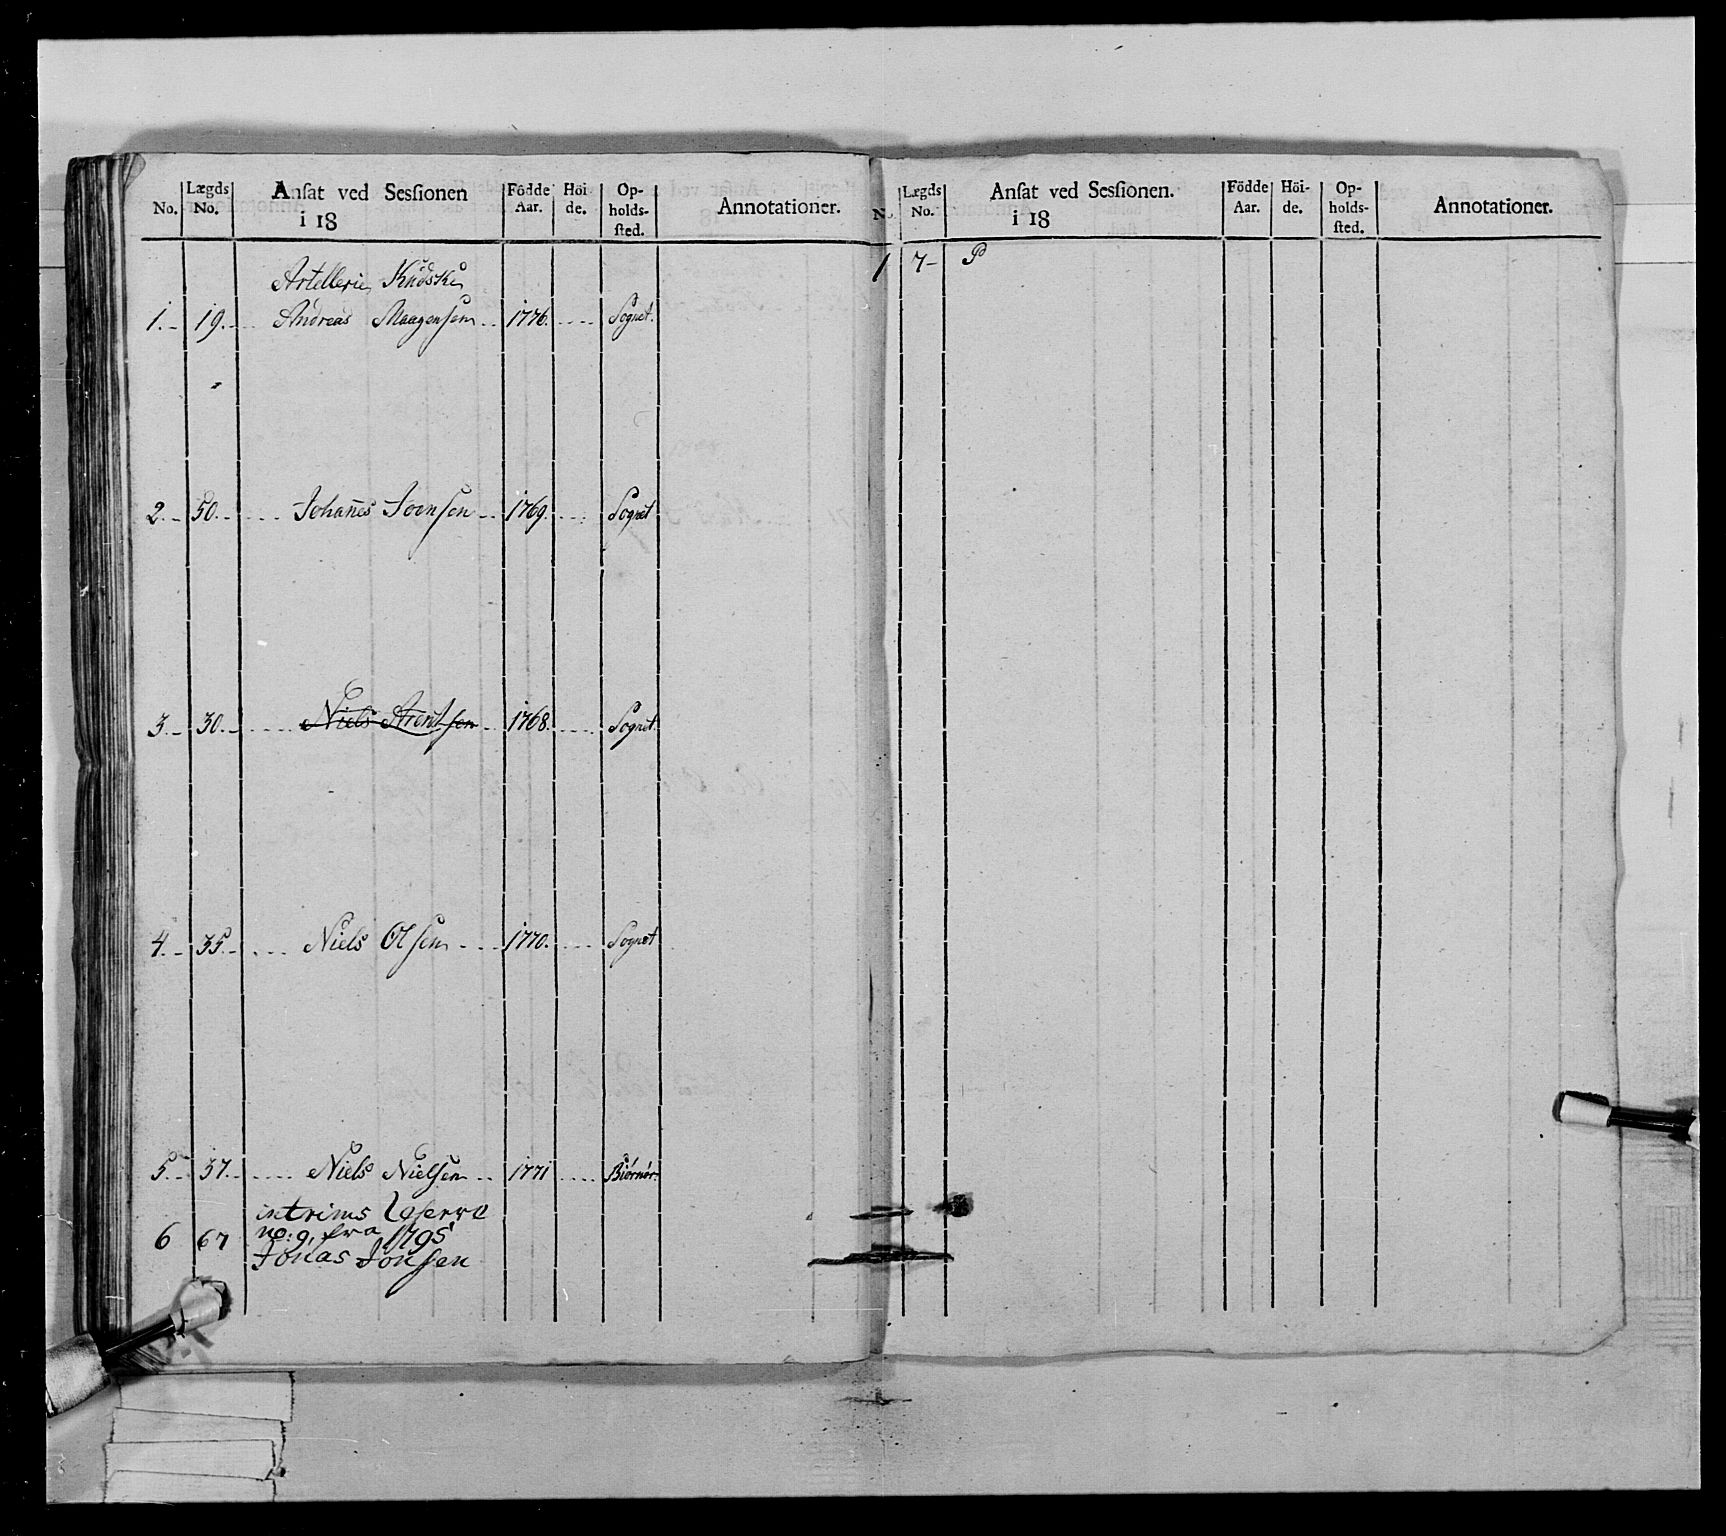 No. Lægds No. Ansat ved Sessionen i 18 Födde Aar. Höi de. Op- holds- sted. Annotationer.
Artellerie Kudske
1. 19. Andreas Maagensen 1776. Sognet.
2. 50. Johanes Joensen 1769. Sognet
3. 30. Niels Arentsen 1768. Sognet.
4. 35. Niels Olsen 1770. Sognet
5. 37. Niels Nielsen 1771 Biörnör.
intrims
no: 9, fra 1795
6 67 Jonas Jonsen
No. Lægds No. Ansat ved Sessionen. i 18 Födde Aar. Höi- de. Op- holds- sted. Annotationer.
1 7- P